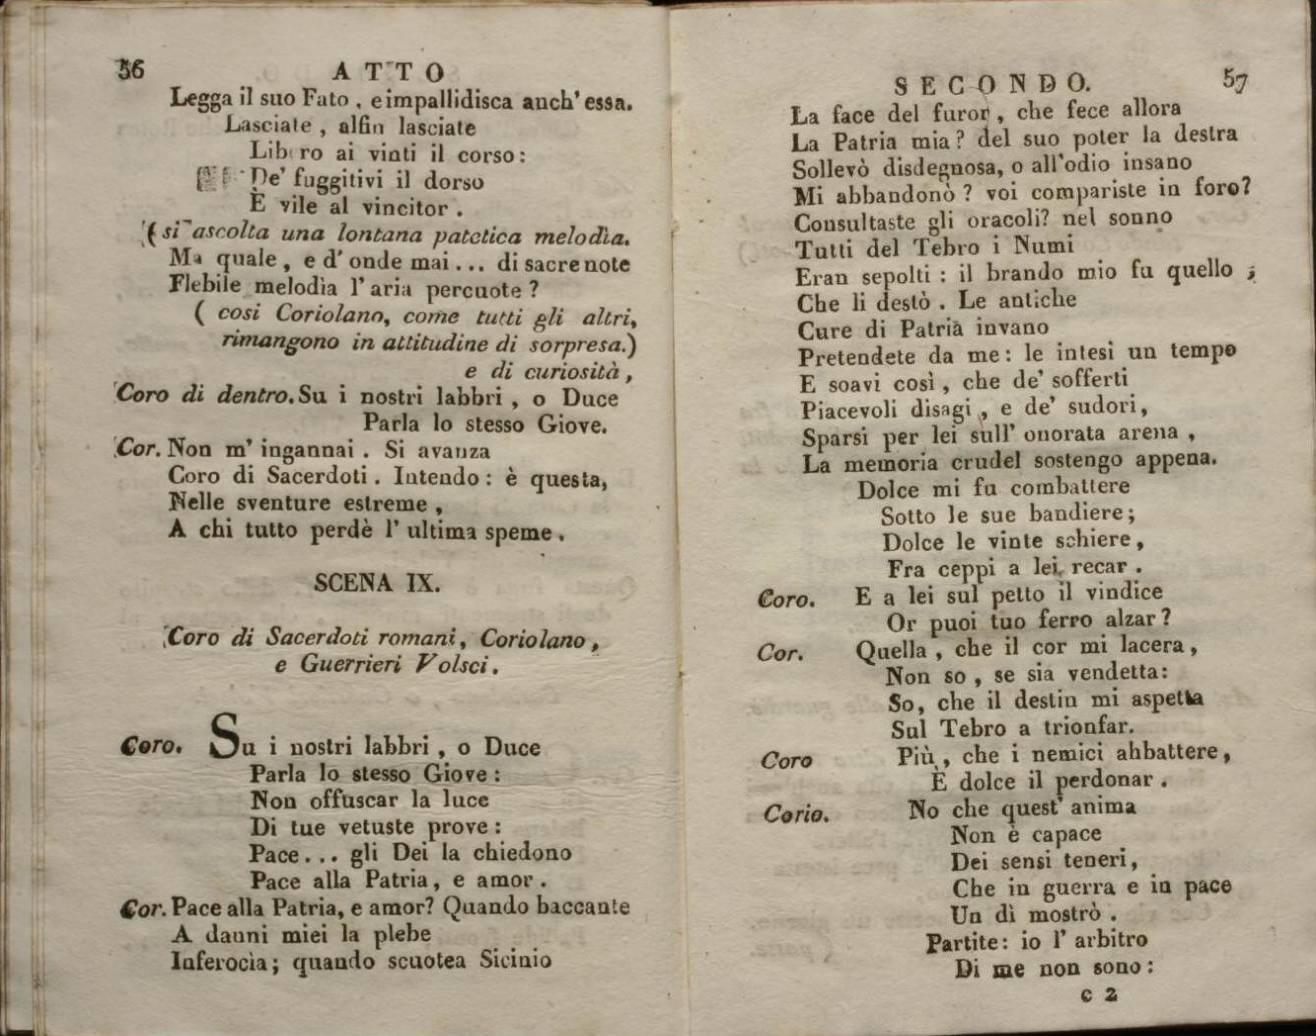 56
ATTO
Legga il suo Fato, e impallidisca anch' essa.
Lasciate, alfin lasciate
Libero ai vinti il corso:
De' fuggitivi il dorso
È vile al vincitor.
(si ascolta una lontana patetica melodìa.
Ma quale, e d' onde mai... di sacre note
Flebile melodìa l' aria percuote?
( così Coriolano, come tutti gli altri,
rimangono in attitudine di sorpresa.)
e di curiosità,
Coro di dentro. Su i nostri labbri, o Duce
Parla lo stesso Giove.
Cor. Non m' ingannai. Si avanza
Coro di Sacerdoti. Intendo: è questa,
Nelle sventure estreme,
A chi tutto perdè l' ultima speme.
SCENA IX.
Coro di Sacerdoti romani, Coriolano,
e Guerrieri Volsci.
Coro. Su i nostri labbri, o Duce
Parla lo stesso Giove:
Non offuscar la luce
Di tue vetuste prove:
Pace... gli Dei la chiedono
Pace alla Patria, e amor.
Cor. Pace alla Patria, e amor? Quando baccante
A danni miei la plebe
Inferocìa; quando scuotea Sicinio
SECONDO.
57
La face del furor, che fece allora
La Patria mia? del suo poter la destra
Sollevò disdegnosa, o all'odio insano
Mi abbandonò? voi compariste in foro?
Consultaste gli oracoli? nel sonno
Tutti del Tebro i Numi
Eran sepolti: il brando mio fu quello;
Che li destò. Le antiche
Cure di Patria invano
Pretendete da me: le intesi un tempo
E soavi così, che de' sofferti
Piacevoli disagi, e de' sudori,
Sparsi per lei sull' onorata arena,
La memoria crudel sostengo appena.
Dolce mi fu combattere
Sotto le sue bandiere;
Dolce le vinte schiere,
Fra ceppi a lei recar.
Coro. E a lei sul petto il vindice
Or puoi tuo ferro alzar?
Cor. Quella, che il cor mi lacera,
Non so, se sia vendetta:
So, che il destin mi aspetta
Sul Tebro a trionfar.
Coro Più, che i nemici abbattere,
È dolce il perdonar.
Corio. No che quest' anima
Non è capace
Dei sensi teneri,
Che in guerra e in pace
Un dì mostrò.
Partite: io l' arbitro
Di me non sono:
c 2